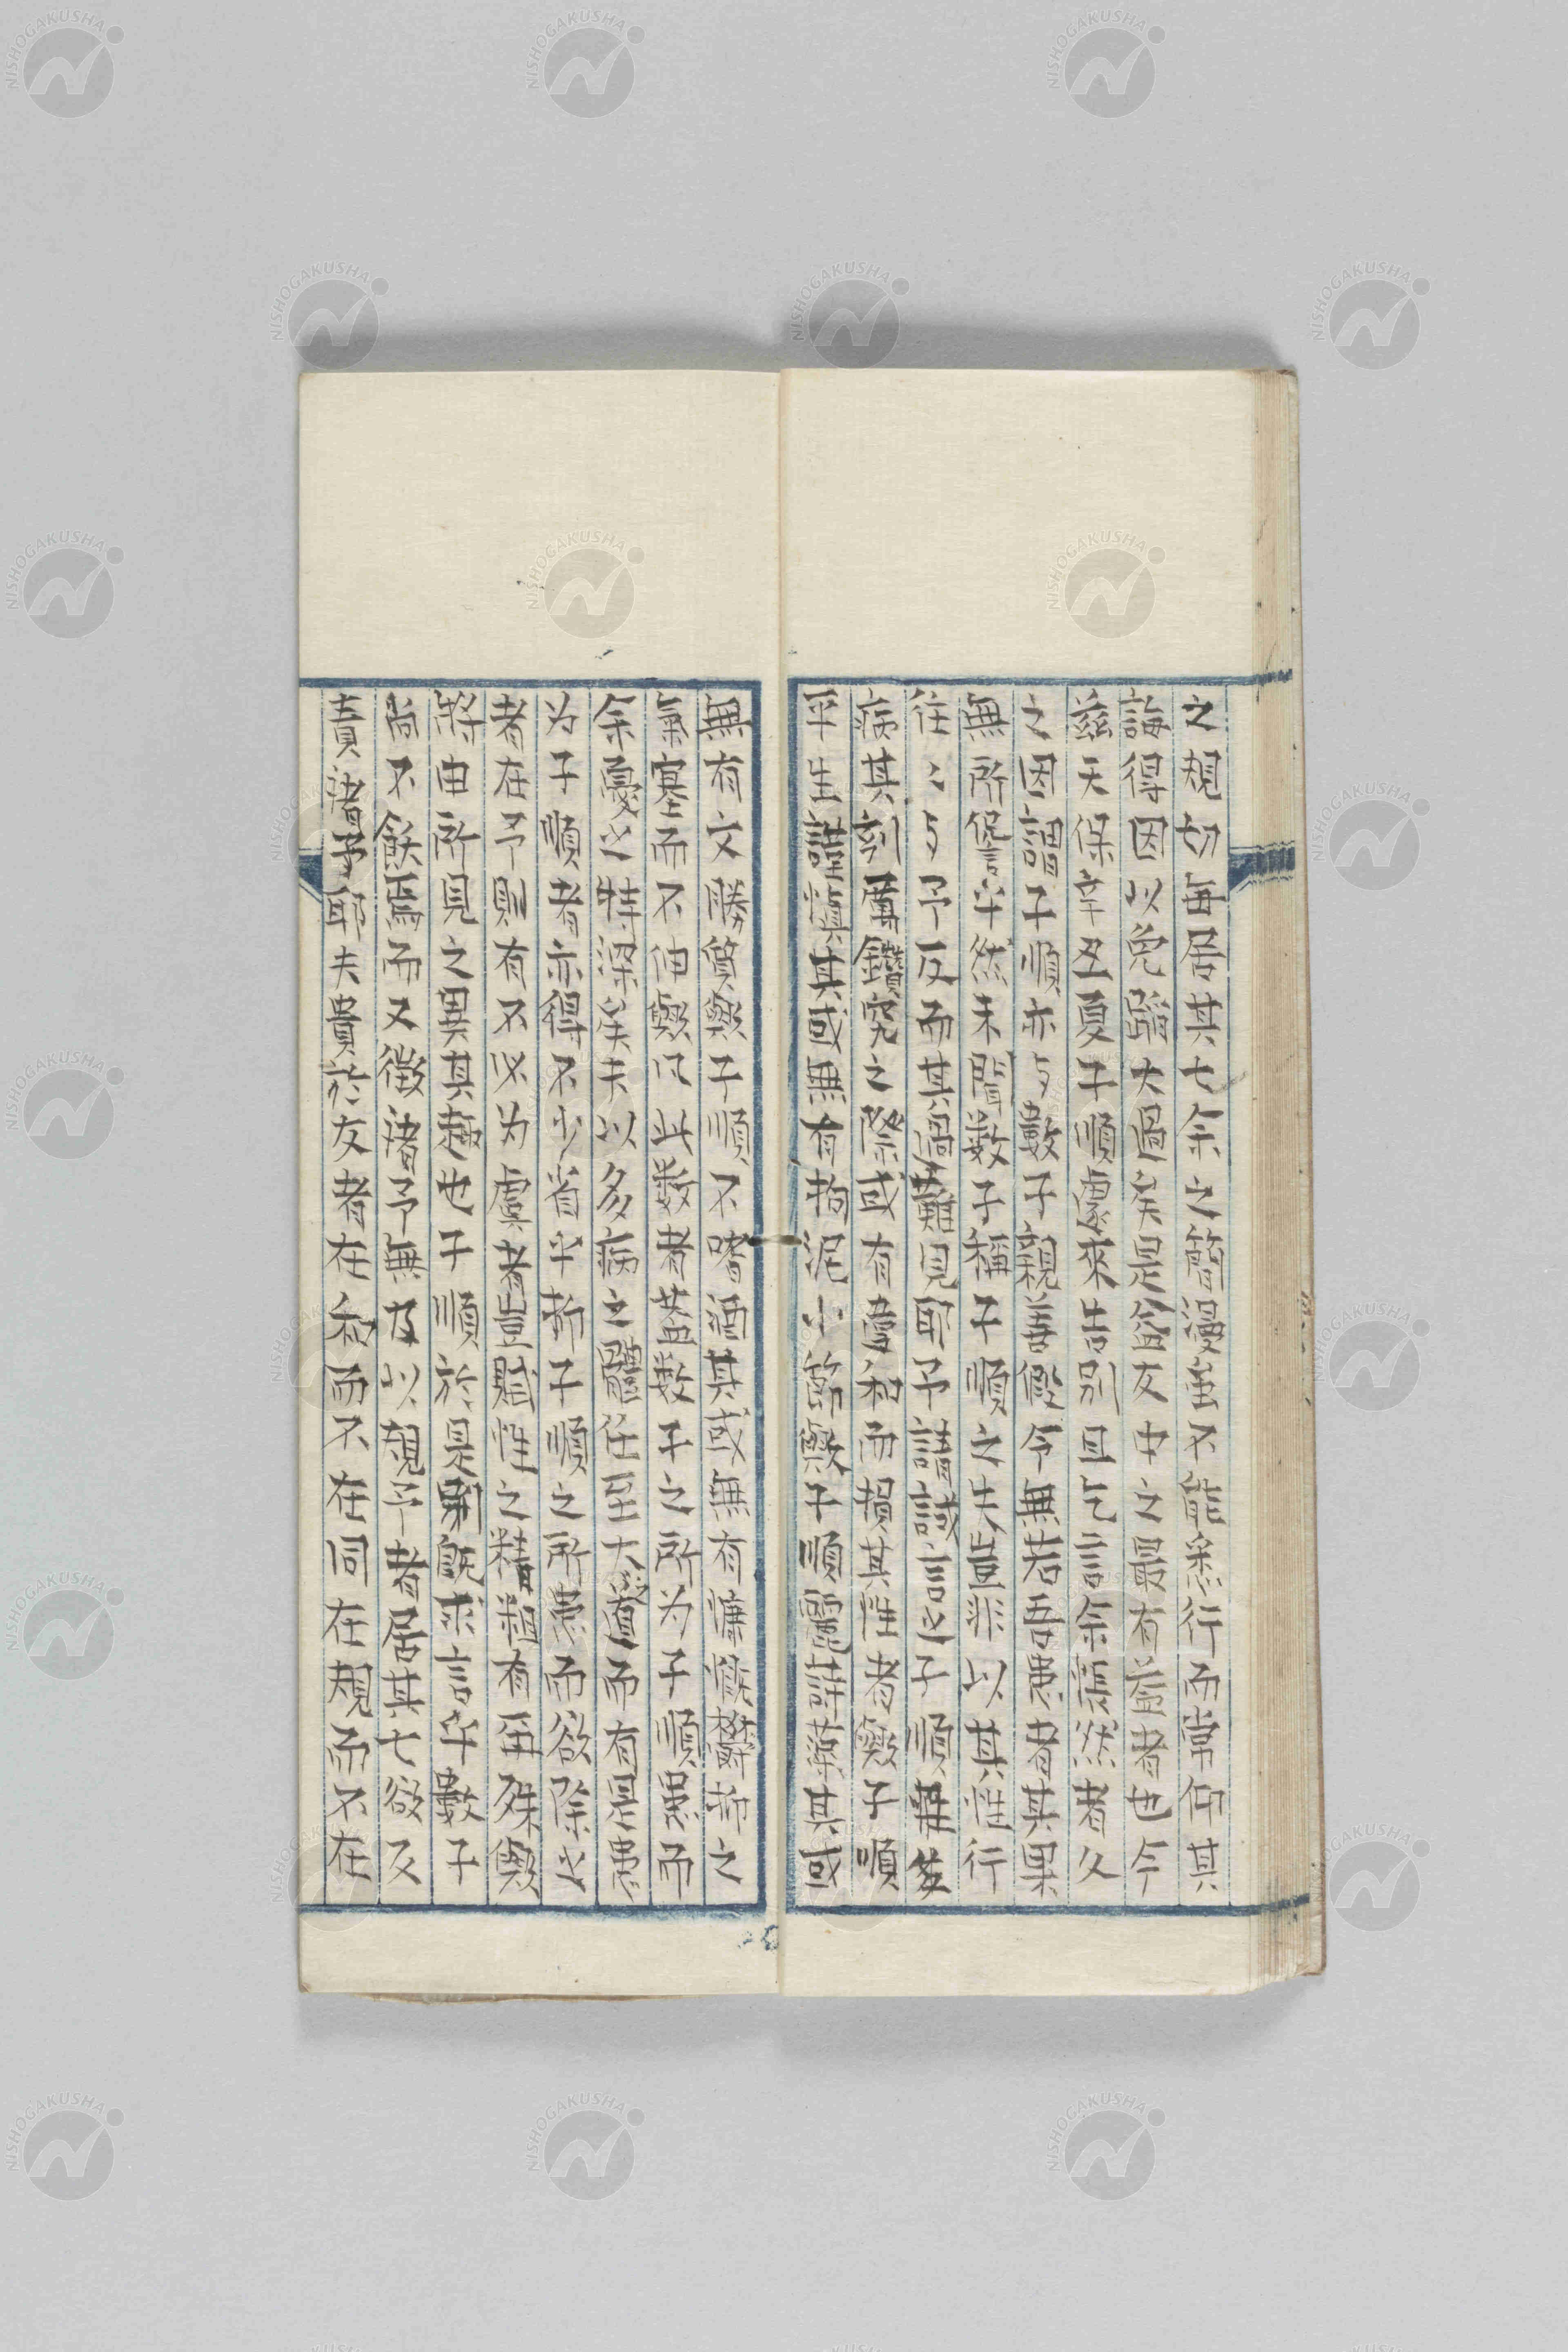 之規切毎居其七余之簡漫虽不能悉行而常仰其
誨得因以免蹈大過矣是益友中之最有益者也今
茲天保辛丑夏子順遽來告别且乞言余悵然者久
之因謂子順亦与數子親善假令無若吾患者其果
無所儆乎然未聞数子稱子順之失豈非以其性行
往〻与予反而其過難見耶予請試言之子順雖多
病其刻厲鑽究之際或有虧和而損其性者歟子順
平生謹愼其或無有拘泥小節歟子順麗詩藻其或
無有文勝質歟子順不嗜酒其或無有慷慨欝抑之
氣塞而不伸歟凡此数者蓋数子之所为子順患而
余憂之特深矣夫以多病之軀任至大道而有是患
为子順者亦得不少省乎抑子順之所患而欲除之
者在予則有不必为虞者豈賦性之精粗有爾殊歟
將由所見之異其趣也子順於是既求言乎數子
尚不飫焉而又徵諸予無乃以規予者居其七欲反
責諸予耶夫貴於友者在和而不在同在規而不在
NISHOGAKUSHA